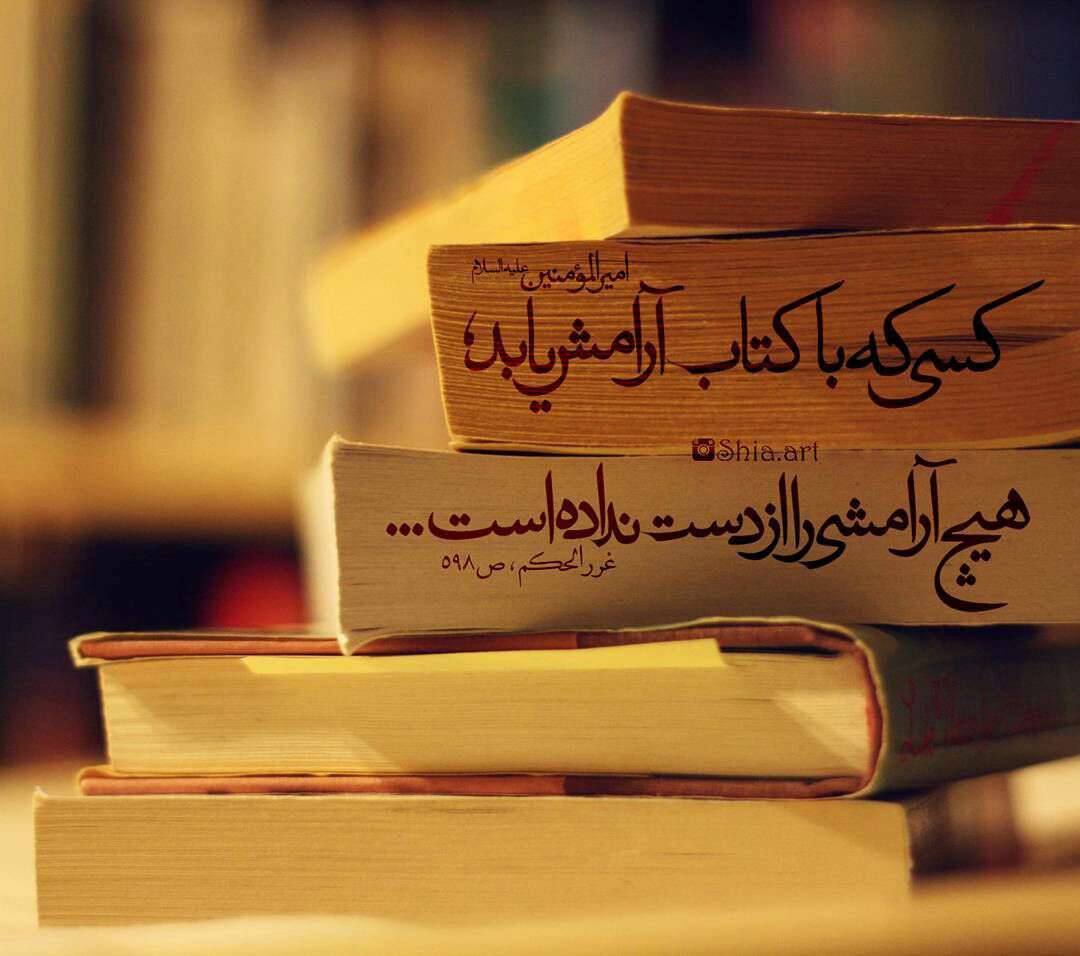 امیرالمؤمنین علیه‌السلام
کسی که با کتاب آرامش یابد،
Shia.art
هیچ آرامشی را از دست نداده است...
غررالحکم، ص۵۹۸